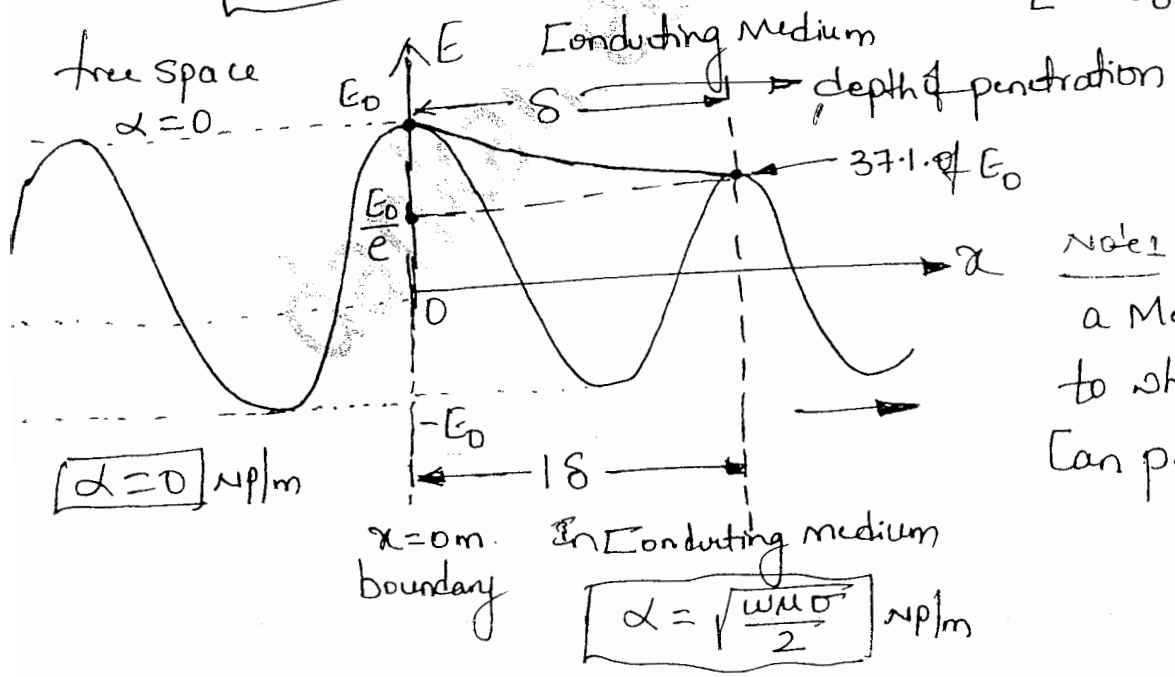 free space
α = 0
E₀
E
Conducting Medium
δ
depth of penetration
37·1· of E₀
E₀/e
x
0
-E₀
Note1
a Me
to wh
Can p
α = 0 Np/m
1δ
x = 0 m.
boundary
In Conducting medium
α = √(ωμσ/2) Np/m